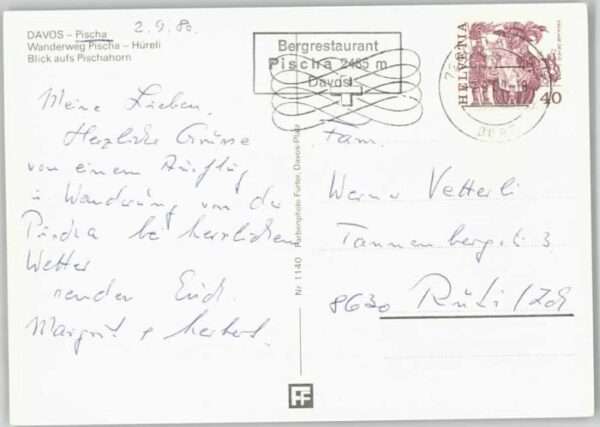 DAVOS – Pischa
Wanderweg Pischa – Hüreli
Blick aufs Pischahorn
2.9.80.
Meine Lieben.
Herzliche Grüsse
von einem Ausflug
u Wanderung von der
Pischa bei herrlichem
Wetter
senden Euch
Margrit & Herbert.
Nr. 1140 Farbenphoto Furter, Davos-Platz
Bergrestaurant
Pischa 2485 m
Davos
HELVETIA
40
Fam.
Werner Vetterli
Tannenbergstr. 3
8630 Rüti/ZH